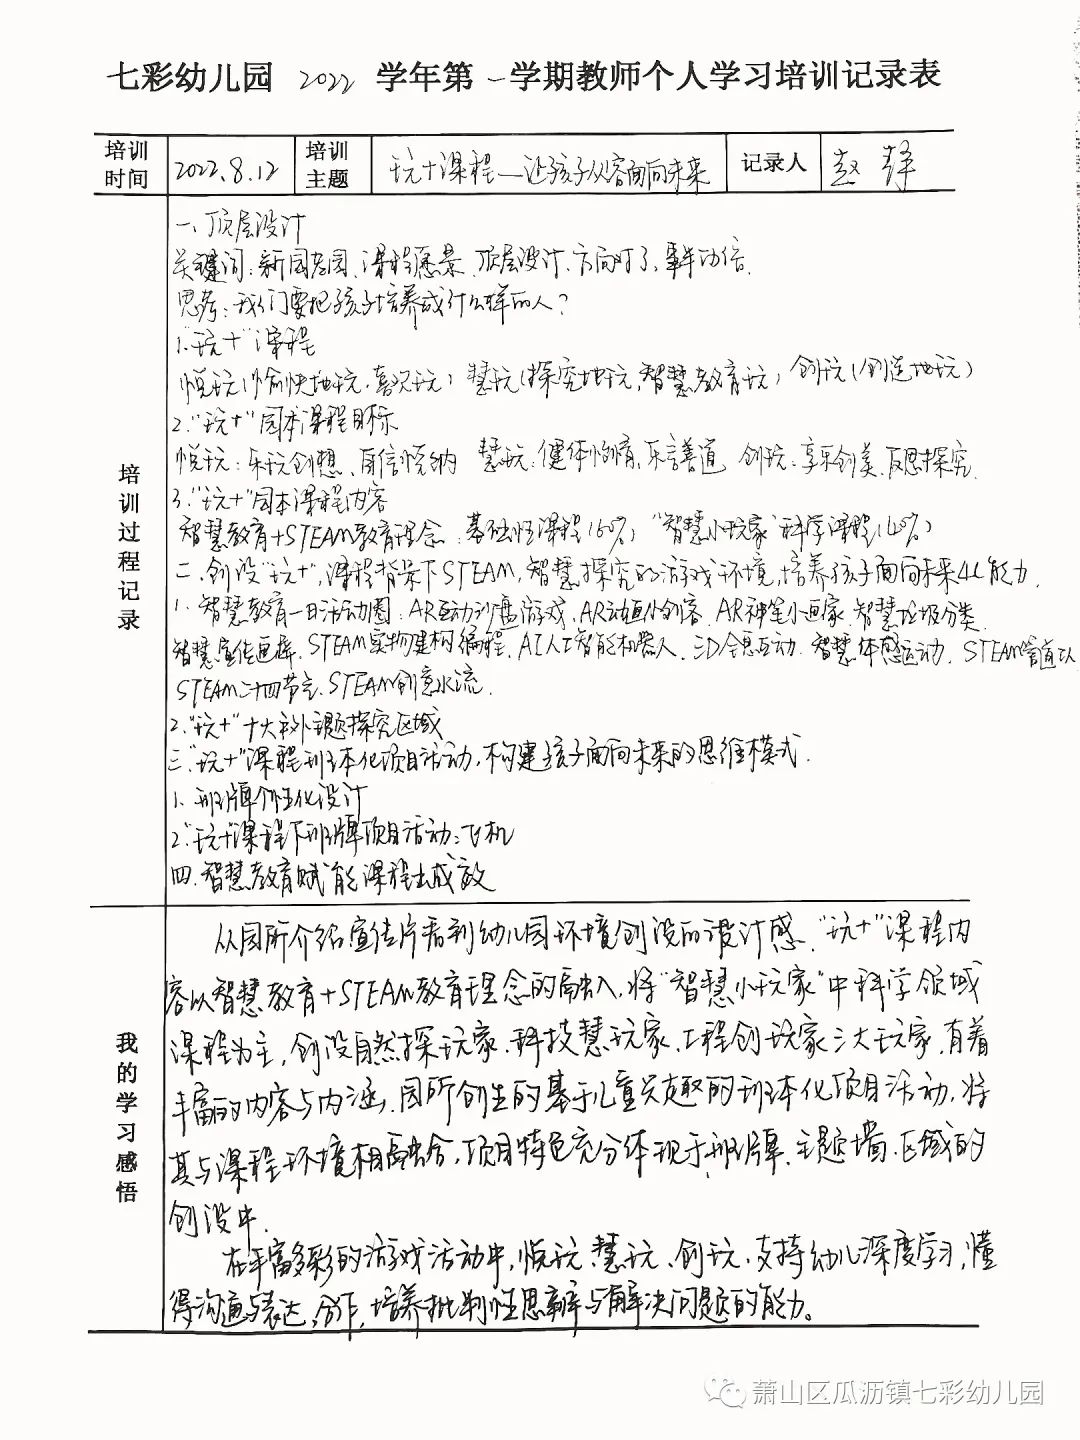 七彩幼儿园 2022 学年第 一 学期教师个人学习培训记录表
培训时间 2022.8.12 培训主题 玩+课程—让孩子从容面向未来 记录人 赵静
培训过程记录
一、顶层设计
关键词:新园老园、课程愿景、顶层设计、方向对了,事半功倍.
思考:我们要把孩子培养成什么样的人?
1."玩+"课程
悦玩(愉快地玩、喜欢玩) 慧玩(探究地玩,智慧教育玩) 创玩(创造地玩)
2."玩+"园本课程目标
悦玩:乐玩创想、自信悦纳 慧玩:健体怡情,乐言善道 创玩:享乐创美、反思探究.
3."玩+"园本课程内容
智慧教育+STEAM教育理念 基础性课程(60%) "智慧小玩家"科学课程(40%)
二、创设"玩+"课程背景下STEAM,智慧探究的游戏环境,培养孩子面向未来4C能力.
1.智慧教育一日活动圈:AR互动沙盘游戏、AR动画小创客、AR神笔小画家、智慧垃圾分类.
智慧宣传画廊、STEAM实物建构编程、AI人工智能机器人、三D全息互动、智慧体感运动、STEAM管道工
STEAM二十四节气、STEAM创意水流.
2."玩+"十大室外主题探究区域
三、"玩+"课程班本化项目活动,构建孩子面向未来的思维模式.
1.班牌个性化设计
2."玩+"课程下班牌项目活动:飞机
四、智慧教育赋能课程出成效
我的学习感悟
从园所介绍宣传片看到幼儿园环境创设的设计感."玩+"课程内
容以智慧教育+STEAM教育理念的融入,将"智慧小玩家"中科学领域
课程为主,创设自然探玩家、科技慧玩家、工程创玩家三大玩家,有着
丰富的内容与内涵.园所创生的基于儿童兴趣的班本化项目活动,将
其与课程环境相融合,项目特色充分体现于班牌、主题墙、区域的
创设中.
在丰富多彩的游戏活动中,悦玩、慧玩、创玩,支持幼儿深度学习,懂
得沟通与表达、合作,培养批判性思辨与解决问题的能力。
萧山区瓜沥镇七彩幼儿园